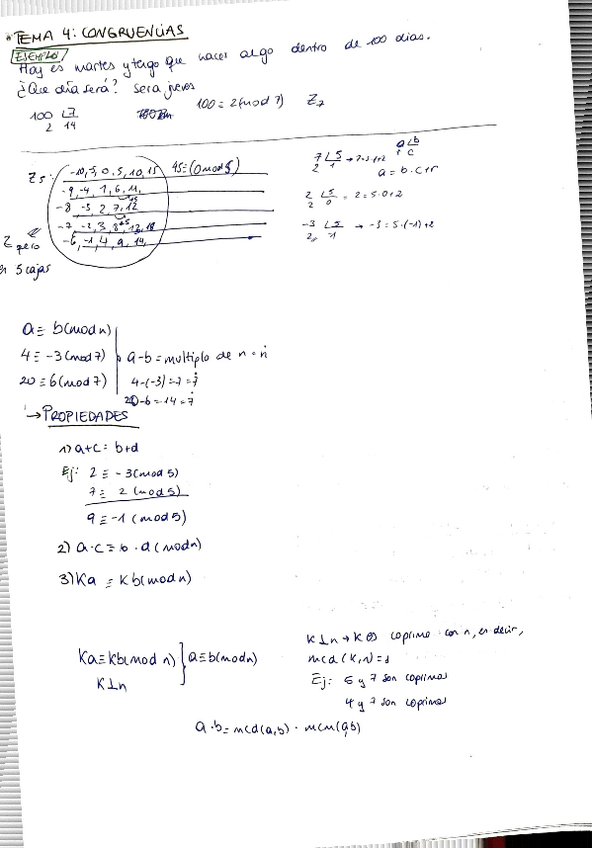 * TEMA 4: CONGRUENCIAS
EJEMPLO
Hoy es martes y tengo que hacer algo dentro de 100 dias.
¿Que día será? Sera jueves
100 = 2(mod 7) Z7
100 |7
2 14
Z5: -10, 5, 0, 5, 10, 15 45 = (0 mod 5)
-9, -4, 1, 6, 11,
-8 -3 2, 7, 12
-7, -2, 3, 8,
-6, -1, 4, 9, 14,
Z pero
en 5 cajas
7 |5 → 7 = 5·1+2
2 1
a |b
r c
a = b·c+r
2 |5 = 2 = 5·0+2
2 0
-3 |5 → -3 = 5·(-1)+2
2 -1
a ≡ b(mod n)
4 ≡ -3 (mod 7)
20 ≡ 6 (mod 7)
a-b = multiplo de n = ṅ
4-(-3) = 7 = 7̇
20-6 = 14 = 7̇
→ PROPIEDADES
1) a+c = b+d
Ej: 2 ≡ -3(mod 5)
7 ≡ 2 (mod 5)
9 ≡ -1 (mod 5)
2) a·c = b·d (mod n)
3) Ka ≡ Kb(mod n)
Ka≡Kb(mod n) } a≡b(mod n)
K⊥n
K⊥n → K es coprimo con n, es decir,
mcd (K,n)=1
Ej: 6 y 7 son coprimos
4 y 7 son coprimos
a·b = mcd(a,b) · mcm(a,b)